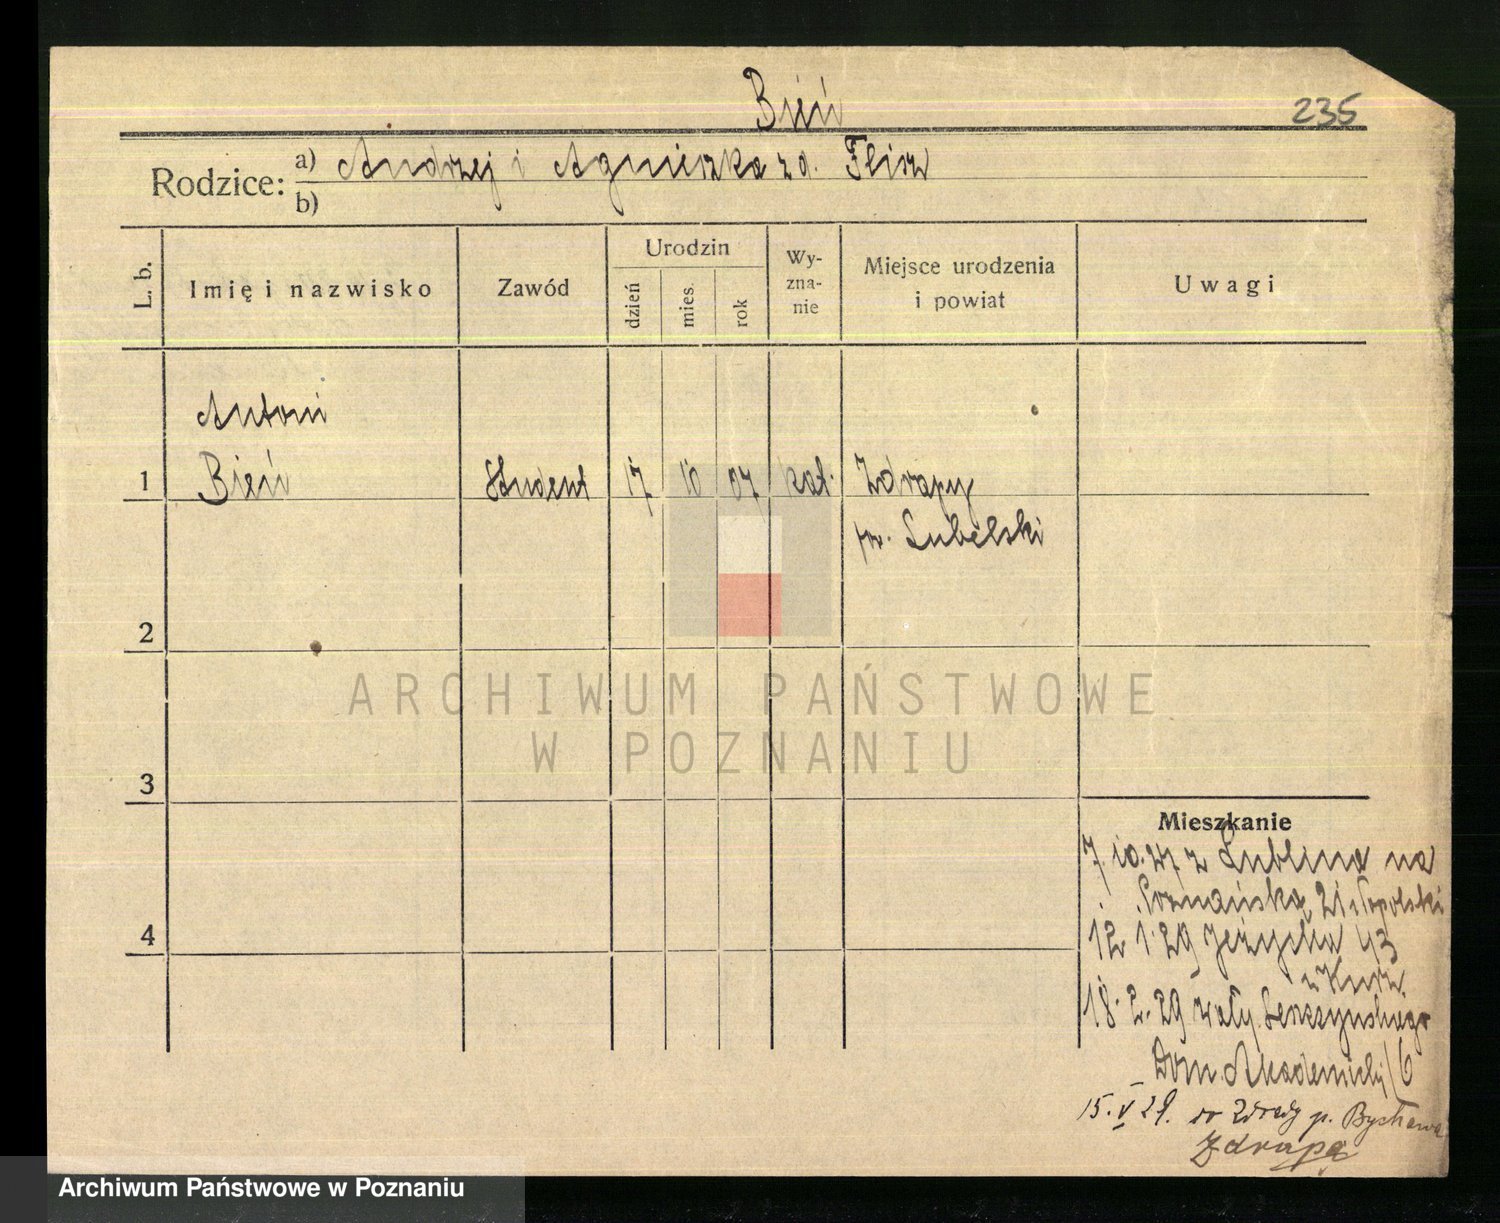 Bień
235
Rodzice:
a) Andrzej i Agnieszka zd. Flisz
b)
L. b.
Imię i nazwisko
Zawód
Urodzin
dzień
mies.
rok
Wy-
zna-
nie
Miejsce urodzenia
i powiat
Uwagi
Antoni
1 Bień Student 17 10 07 kat. Zdrapy
pw. Lubelski
2
3
4
Mieszkanie
7.10.27 z Lublina na
Poznańską 21
12 1 29 Jeżycka 43
18.2.29 wały Leszczyńskiego
Dom. Akademicki 6
15.V 29. do p. Bychawa
Zdrapą
ARCHIWUM PAŃSTWOWE
W POZNANIU
Archiwum Państwowe w Poznaniu